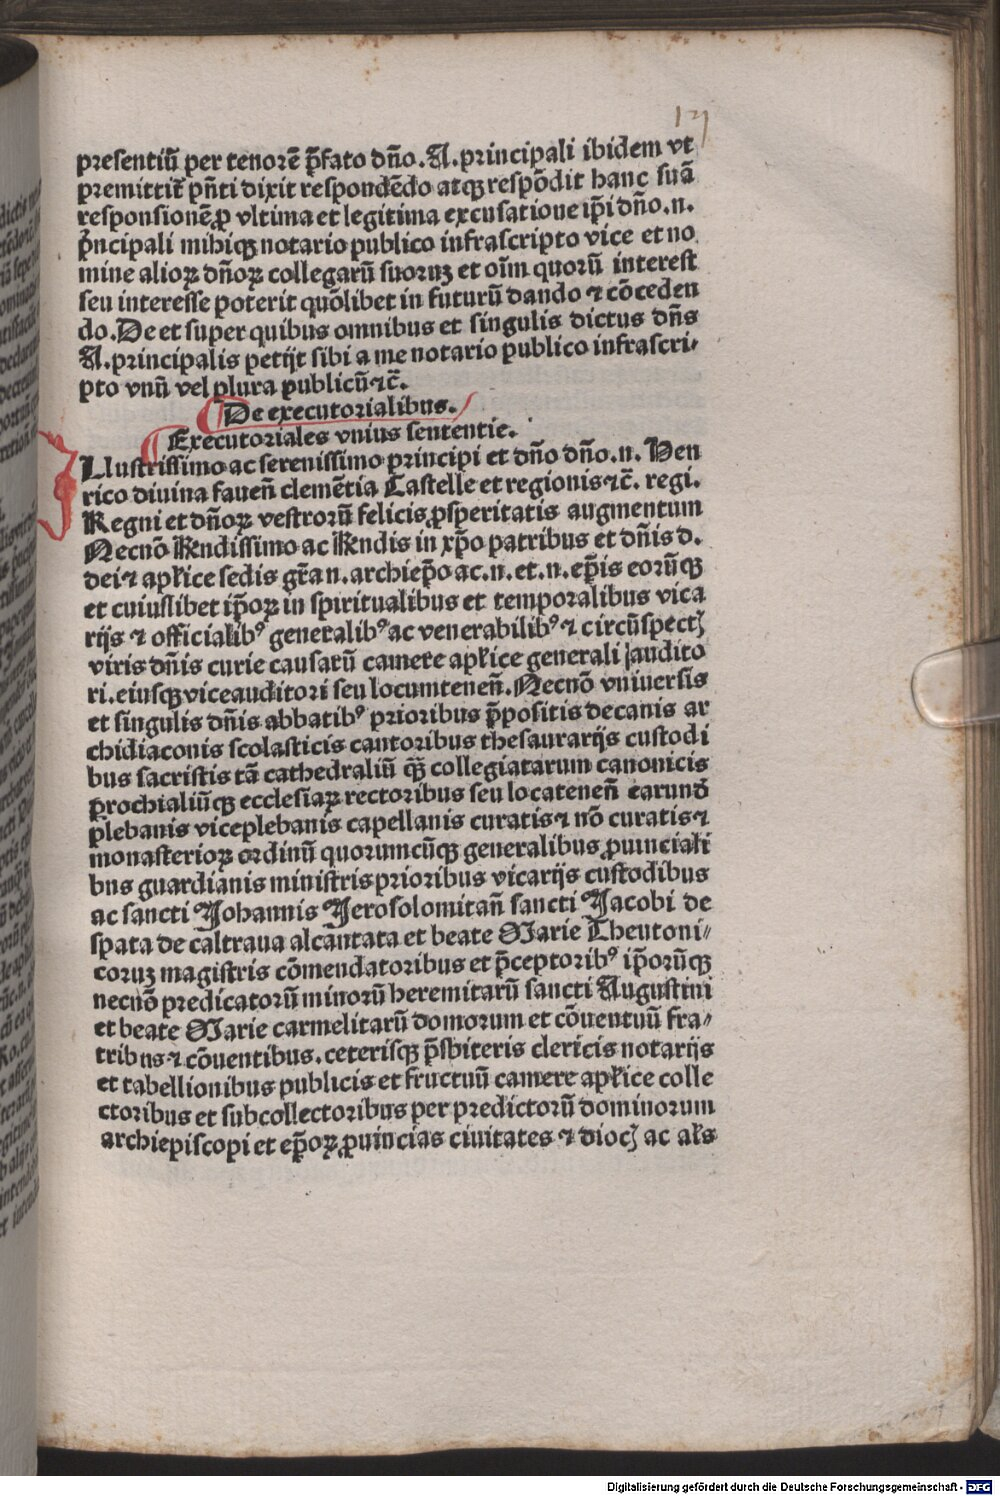 presentiū per tenorē p̄fato dn̄o. A. principali ibidem vt
premittit᷑ pn̄ti dixit respondēdo atqꝫ respōdit hanc suā
responsionē ꝓ vltima et legitima excusatioue ip̄i dn̄o. n.
pͥncipali mihiqꝫ notario publico infrascripto vice et no
mine alioꝝ dn̄oꝝ collegarū suoruꝫ et oīm quorū interest
seu interesse poterit quōlibet in futurū dando ⁊ cōceden
do. De et super quibus omnibus et singulis dictus dn̄s
A. principalis petijt sibi a me notario publico infrascri⸗
pto vnū vel plura publicū ⁊c̄.
De executorialibus.
Executoriales vnius sententie.
Llustrissimo ac serenissimo principi et dn̄o dn̄o. n. Hen
rico diuina faueñ clemētia Castelle et regionis ⁊c̄. regi.
Regni et dn̄oꝝ vestrorū felicis ꝓsperitatis augmentum
Necnō Rendissimo ac Rendis in xp̄o patribus et dn̄is d.
dei ⁊ apłice sedis gr̄a n. archiep̄o ac. n. et. n. ep̄is eorūqꝫ
et cuiuslibet ip̄oꝝ in spiritualibus et temporalibus vica
rijs ⁊ officialibꝰ generalibꝰ ac venerabilibꝰ ⁊ circūspectꝭ
viris dn̄is curie causarū camere apłice generali audito
ri. eiusqꝫ viceauditori seu locumteneñ. Necnō vniuersis
et singulis dn̄is abbatibꝰ prioribus p̄positis decanis ar
chidiaconis scolasticis cantoribus thesaurarijs custodi
bus sacristis tā cathedraliū qꝫ̄ collegiatarum canonicis
ꝑrochialiūqꝫ ecclesiaꝝ rectoribus seu locateneñ earunđ
plebanis viceplebanis capellanis curatis ⁊ nō curatis ⁊
monasterioꝝ ordinū quorumcūqꝫ generalibus ꝓuinciali
bus guardianis ministris prioribus vicarijs custodibus
ac sancti Johannis Jerosolomitañ sancti Jacobi de
spata de caltraua alcantata et beate Marie Theutoni⸗
coruꝫ magistris cōmendatoribus et p̄ceptoribꝰ ip̄orūqꝫ
necnō predicatorū minorū heremitarū sancti Augustini
et beate Marie carmelitarū domorum et cōuentuū fra⸗
tribus ⁊ cōuentibus. ceterisqꝫ p̄sbiteris clericis notarijs
et tabellionibus publicis et fructuū camere apłice colle
ctoribus et subcollectoribus per predictorū dominorum
archiepiscopi et ep̄oꝝ ꝓuincias ciuitates ⁊ diocꝭ ac ałs
Digitalisierung gefördert durch die Deutsche Forschungsgemeinschaft - DFG